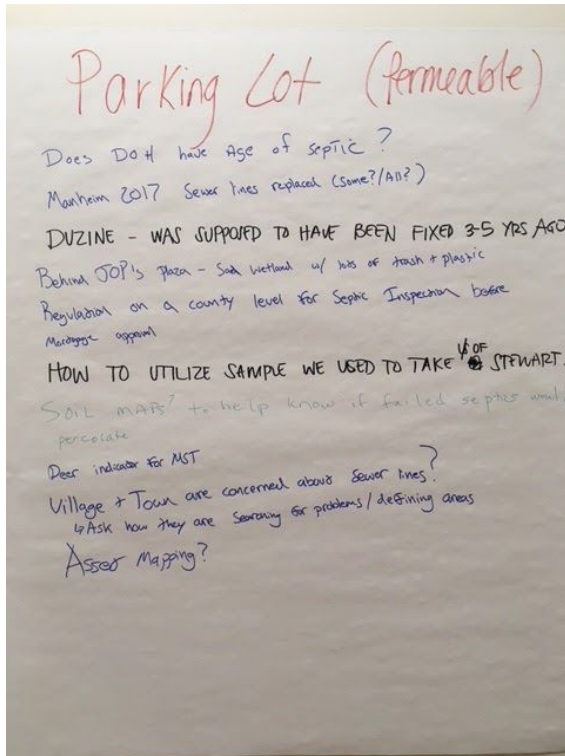 Parking Lot (Permeable)
Does DOH have Age of septic?
Manheim 2017 Sewer lines replaced (some?/All?)
DUZINE - WAS SUPPOSED TO HAVE BEEN FIXED 3-5 YRS AGO
Behind JOP's Plaza - Sad wetland w/ lots of trash + plastic
Regulation on a county level for Septic Inspection before
Mortgage approval
HOW TO UTILIZE SAMPLE WE USED TO TAKE OF STEWART.
Soil maps? to help know if failed septics would
percolate
Deer indicator for MST
Village + Town are concerned about Sewer lines?
↳Ask how they are searching for problems/defining areas
Asset Mapping?